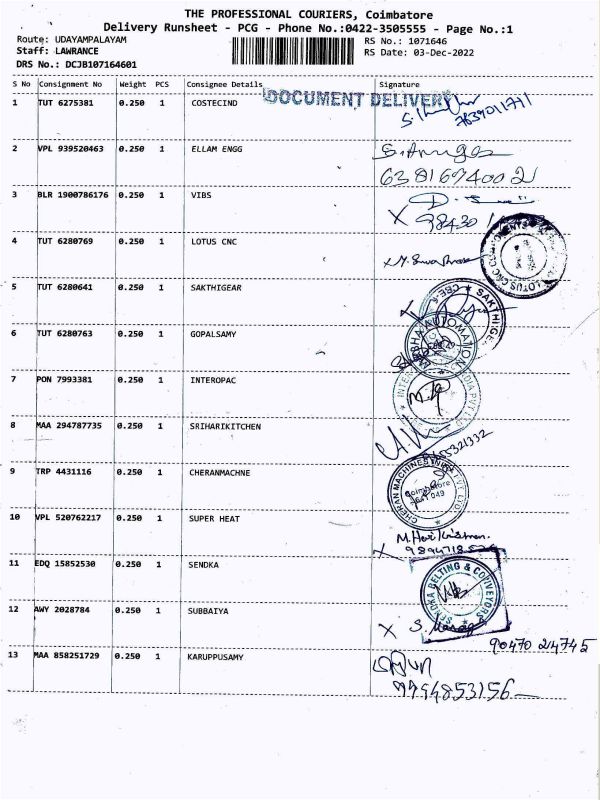 THE PROFESSIONAL COURIERS, Coimbatore
Delivery Runsheet - PCG - Phone No.:0422-3505555 - Page No.:1
Route: UDAYAMPALAYAM
RS No.: 1071646
Staff: LAWRANCE
RS Date: 03-Dec-2022
DRS No.: DCJB107164601
S No Consignment No Weight PCS Consignee Details Signature
DOCUMENT DELIVERY
1 TUT 6275381 0.250 1 COSTECIND
7639011711
2 VPL 939520463 0.250 1 ELLAM ENGG
6381694002
3 BLR 1900786176 0.250 1 VIBS
98430
4 TUT 6280769 0.250 1 LOTUS CNC
LOTUS CNC COMPONENTS
5 TUT 6280641 0.250 1 SAKTHIGEAR
CBE-6 ★ SAKTHIGE
6 TUT 6280763 0.250 1 GOPALSAMY
AUTOMATION
7 PON 7993381 0.250 1 INTEROPAC
8 MAA 294787735 0.250 1 SRIHARIKITCHEN
9 TRP 4431116 0.250 1 CHERANMACHNE
CHERAN MACHINES INDIA PRIVATE LTD.
Coimbatore
10 VPL 520762217 0.250 1 SUPER HEAT
M. Hari Krishnan
11 EDQ 15852530 0.250 1 SENDKA
SENDKA BELTING & CONVEYORS
12 AWY 2028784 0.250 1 SUBBAIYA
90470 24745
13 MAA 858251729 0.250 1 KARUPPUSAMY
9994853156